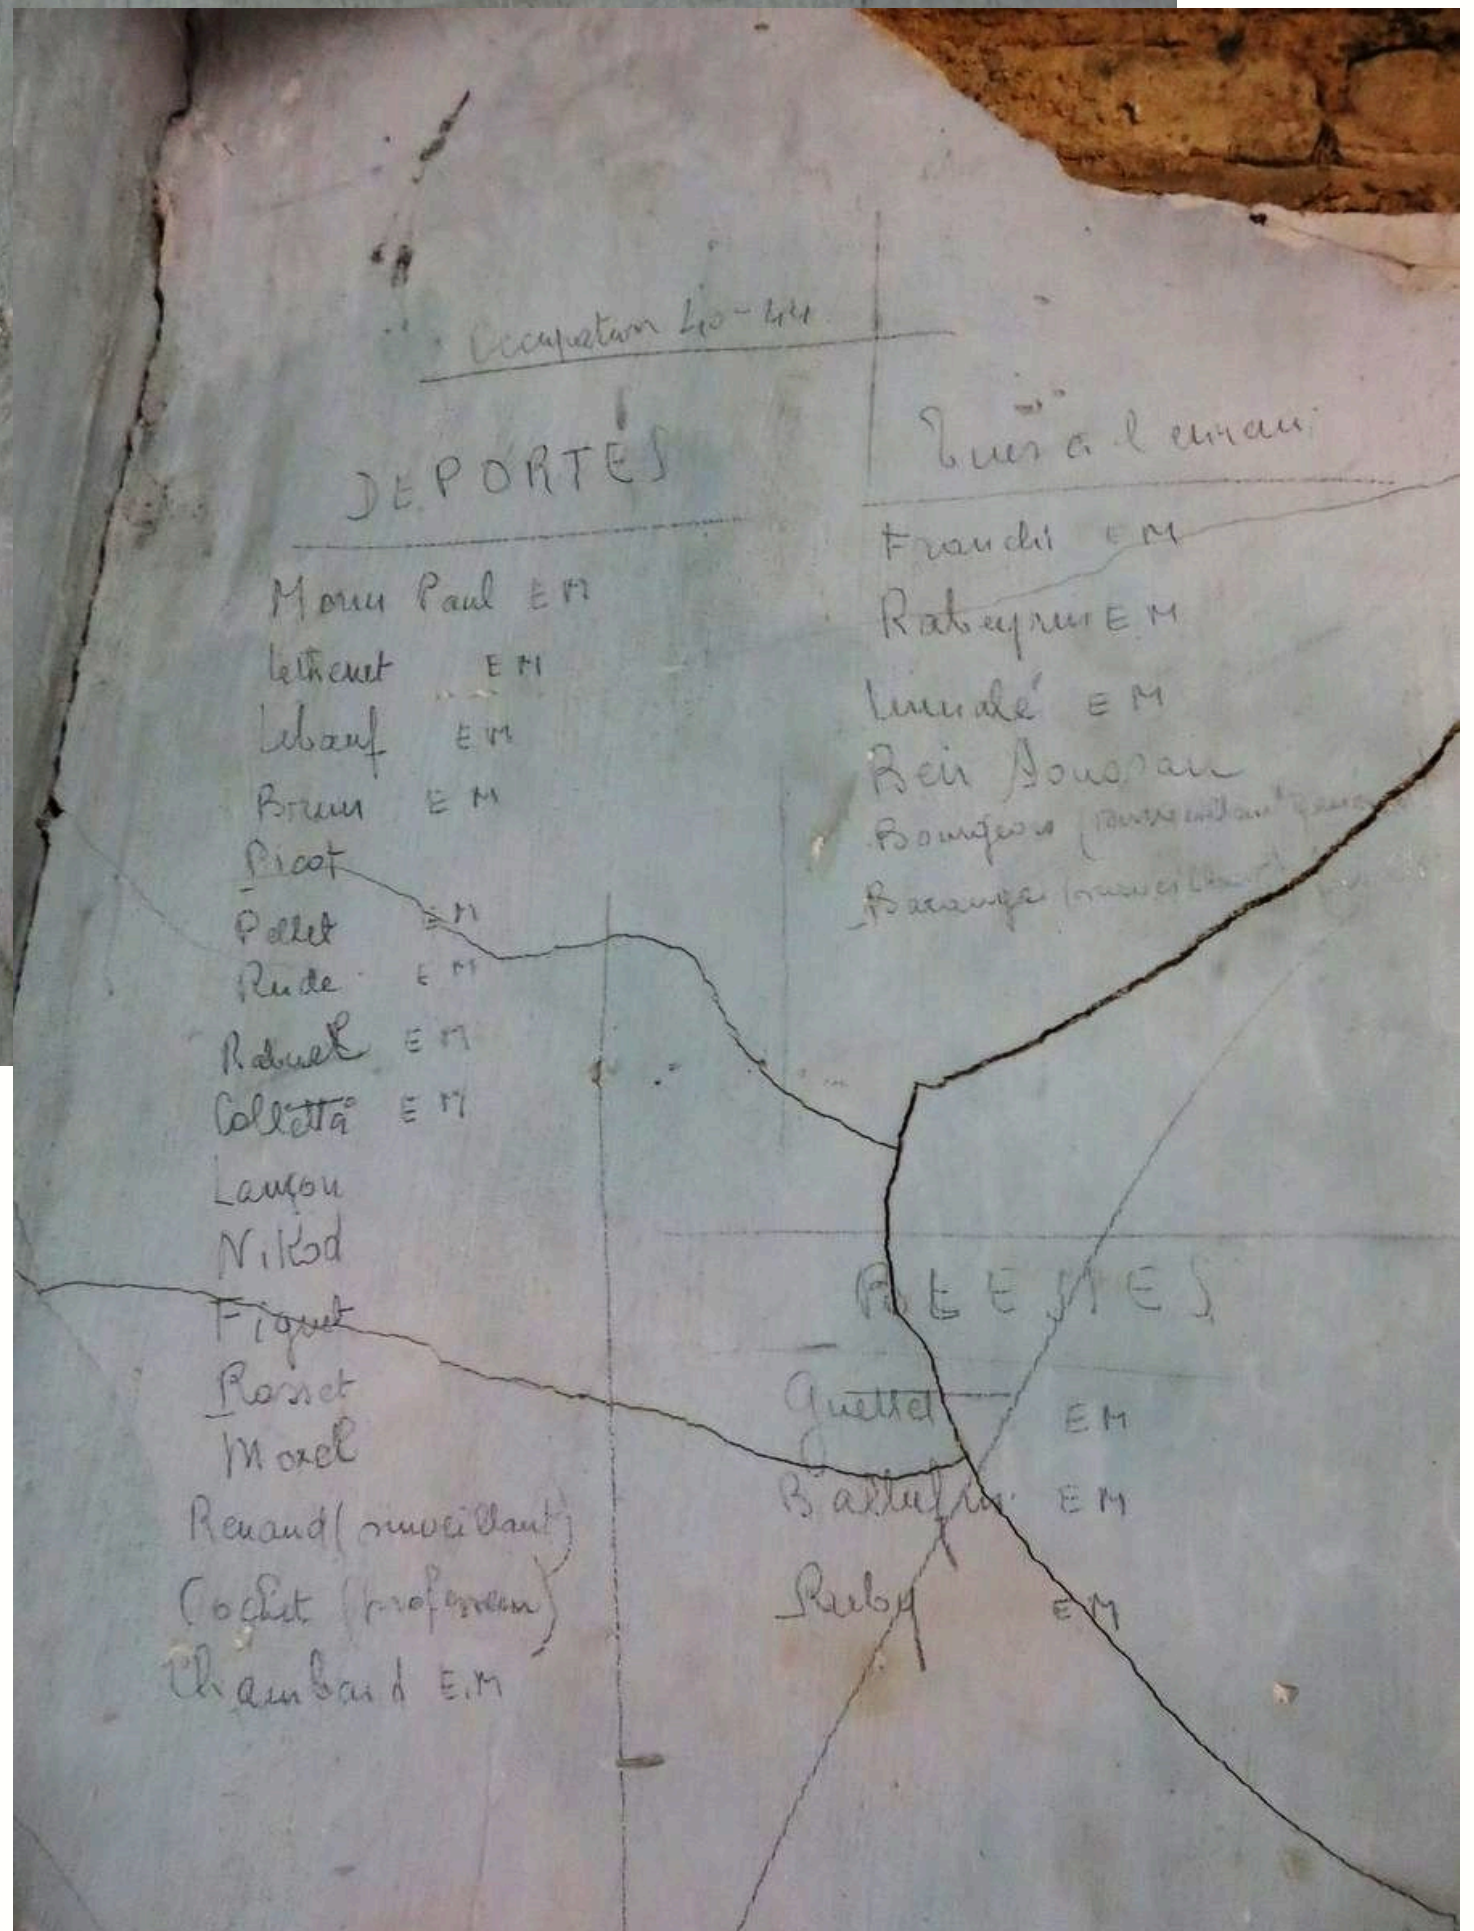 Occupation 40-44
DEPORTÉS
Morin Paul E M
Lethenet E M
Lebœuf E M
Brun E M
Picot
Pellet E M
Rude E M
Rabuel E M
Colletta E M
Lançon
Nikod
Figuet
Rosset
Morel
Renaud (surveillant)
Cochet (professeur)
Chambard E.M
Tués à l'ennemi
Franchi E M
Rabeyrin E M
E M
Bourgeois
(surveillant
BLESSES
Guettet E M
E M
Ruby E M